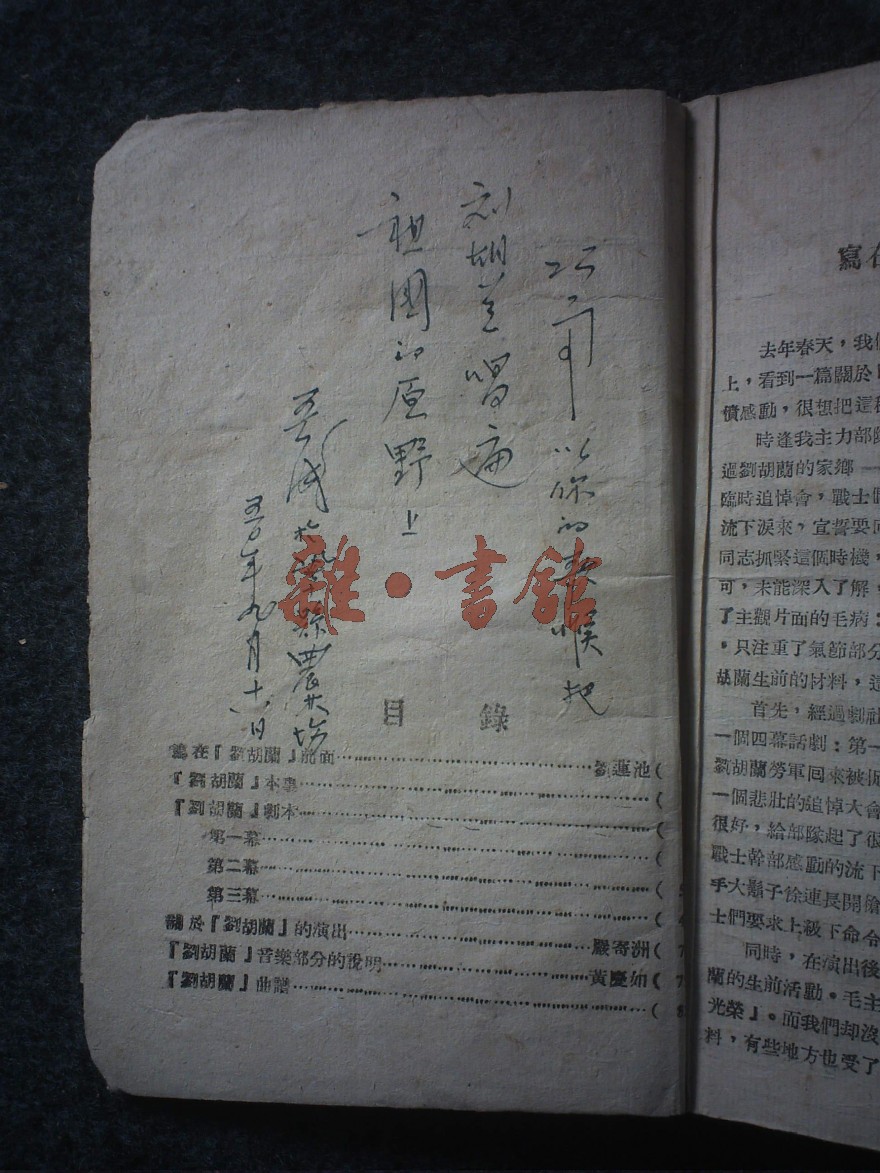 以你的歌喉把
刘胡兰唱遍
祖国的原野上
於 縣農場
五〇年九月十六日
雜·書館
目 錄
寫在『劉胡蘭』前面 劉蓮池（
『劉胡蘭』本事 （
『劉胡蘭』劇本 （
第一幕 （
第二幕 （
第三幕 （
關於『劉胡蘭』的演出 嚴寄洲（
『劉胡蘭』音樂部分的說明 黃慶如（7
『劉胡蘭』曲譜 （8
寫在
去年春天，我們
上，看到一篇關於
憤感動，很想把這
時逢我主力部隊
過劉胡蘭的家鄉—
臨時追悼會，戰士們
流下淚來，宣誓要
同志抓緊這個時機，
可，未能深入了解，
了主觀片面的毛病：
。只注重了氣節部分
胡蘭生前的材料，這
首先，經過劇社
一個四幕話劇：第一
劉胡蘭勞軍回來被
一個悲壯的追悼大會
很好，給部隊起了很
戰士幹部感動的流下
手大鬍子徐連長開槍
士們要求上級下命令
同時，在演出後
蘭的生前活動。毛主
光榮』。而我們却沒
料，有些地方也受了